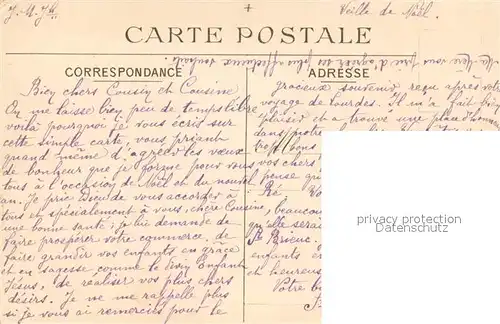 J. M. Jh.
+
Veille de Noël.
CARTE POSTALE
CORRESPONDANCE
ADRESSE
Bien chers Cousin et Cousine
On me laisse bien peu de temps libre
voilà pourquoi je vous écris sur
cette simple carte, vous priant
quand même d'agréer les vœux
de bonheur que je forme pour vous
tous à l'occasion de Noël et du nouvel
an. Je prie Dieu de vous accorder à
tous et spécialement à vous, chère Cousine,
une bonne santé; je lui demande de
faire prospérer votre commerce, de
faire grandir vos enfants en grâce
et en sagesse comme le Divin Enfant
Jésus, de réaliser vos plus chers
désirs. Je ne me rappelle plus
si je vous ai remerciés pour le
gracieux souvenir reçu après votre
voyage de Lourdes. Il m'a fait bien
plaisir et a trouvé une place d'honneur
dans notre
vos chers
pense
beaucoup
qu'elle serai
St Brieuc
enfants e
et heureuse
Votre
privacy protection
Datenschutz